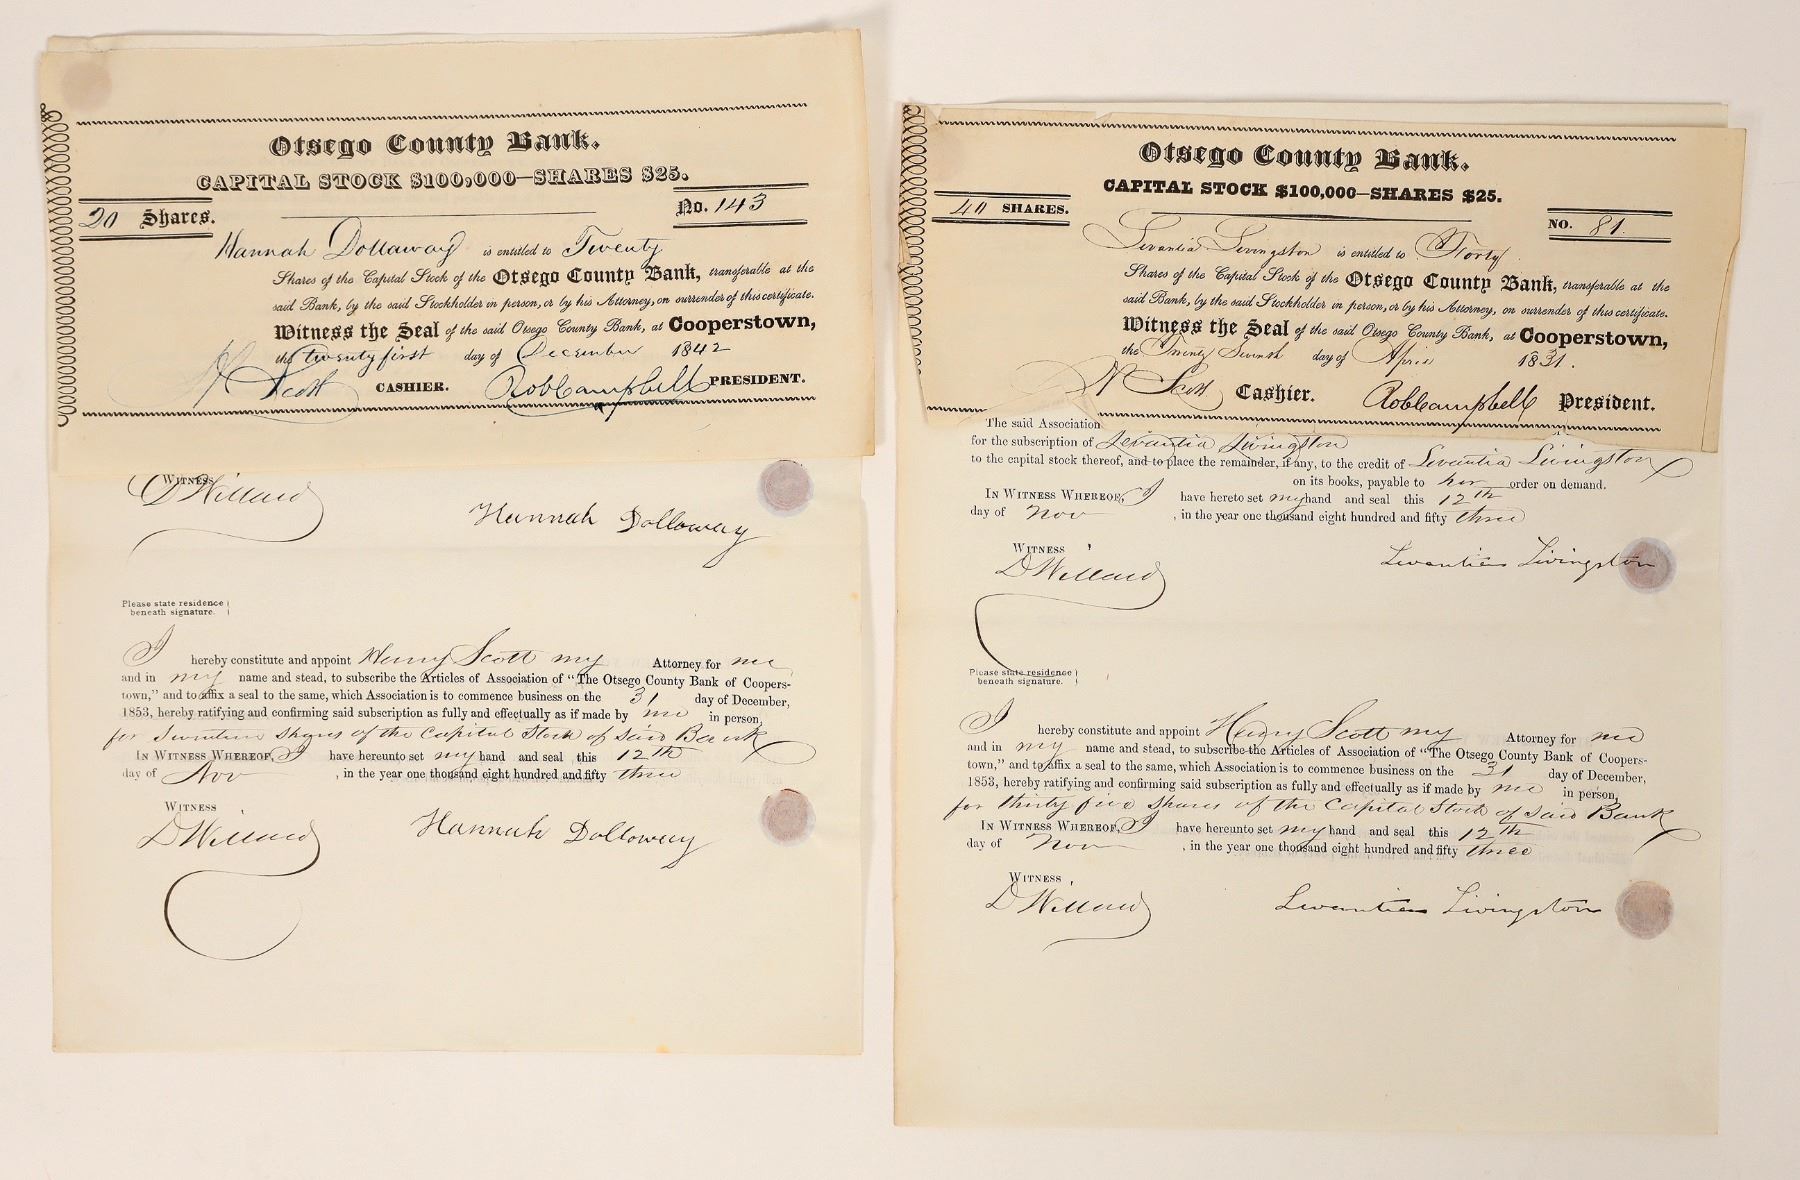 Otsego County Bank.
CAPITAL STOCK $100,000—SHARES $25.
20 Shares.
No. 143
Hannah Dollaway is entitled to Twenty
Shares of the Capital Stock of the Otsego County Bank, transferable at the
said Bank, by the said Stockholder in person, or by his Attorney, on surrender of this certificate.
Witness the Seal of the said Otsego County Bank, at Cooperstown,
the twenty first day of December 1842
H Scott CASHIER. Rob Campbell PRESIDENT.
WITNESS
D Willard
Hannah Dolloway
Please state residence
beneath signature.
I hereby constitute and appoint Henry Scott my Attorney for me
and in my name and stead, to subscribe the Articles of Association of "The Otsego County Bank of Coopers-
town," and to affix a seal to the same, which Association is to commence business on the 31 day of December,
1853, hereby ratifying and confirming said subscription as fully and effectually as if made by me in person,
for shares of the Capital Stock of said Bank
IN WITNESS WHEREOF, I have hereunto set my hand and seal this 12th
day of Nov , in the year one thousand eight hundred and fifty three
WITNESS
D Willard
Hannah Dolloway
Otsego County Bank.
CAPITAL STOCK $100,000—SHARES $25.
40 SHARES.
NO. 81.
Levantia Livingston is entitled to Forty
Shares of the Capital Stock of the Otsego County Bank, transferable at the
said Bank, by the said Stockholder in person, or by his Attorney, on surrender of this certificate.
Witness the Seal of the said Otsego County Bank, at Cooperstown,
the Twenty Seventh day of April 1831.
H Scott Cashier. Rob Campbell President.
The said Association
for the subscription of Levantia Livingston
to the capital stock thereof, and to place the remainder, if any, to the credit of Levantia Livingston
on its books, payable to her order on demand.
IN WITNESS WHEREOF, I have hereto set my hand and seal this 12th
day of Nov , in the year one thousand eight hundred and fifty three
WITNESS
D Willard
Levantia Livingston
Please state residence
beneath signature.
I hereby constitute and appoint Henry Scott my Attorney for me
and in my name and stead, to subscribe the Articles of Association of "The Otsego County Bank of Coopers-
town," and to affix a seal to the same, which Association is to commence business on the 31 day of December,
1853, hereby ratifying and confirming said subscription as fully and effectually as if made by me in person,
for thirty five shares of the Capital Stock of said Bank
IN WITNESS WHEREOF, I have hereunto set my hand and seal this 12th
day of Nov , in the year one thousand eight hundred and fifty three
WITNESS
D Willard
Levantia Livingston